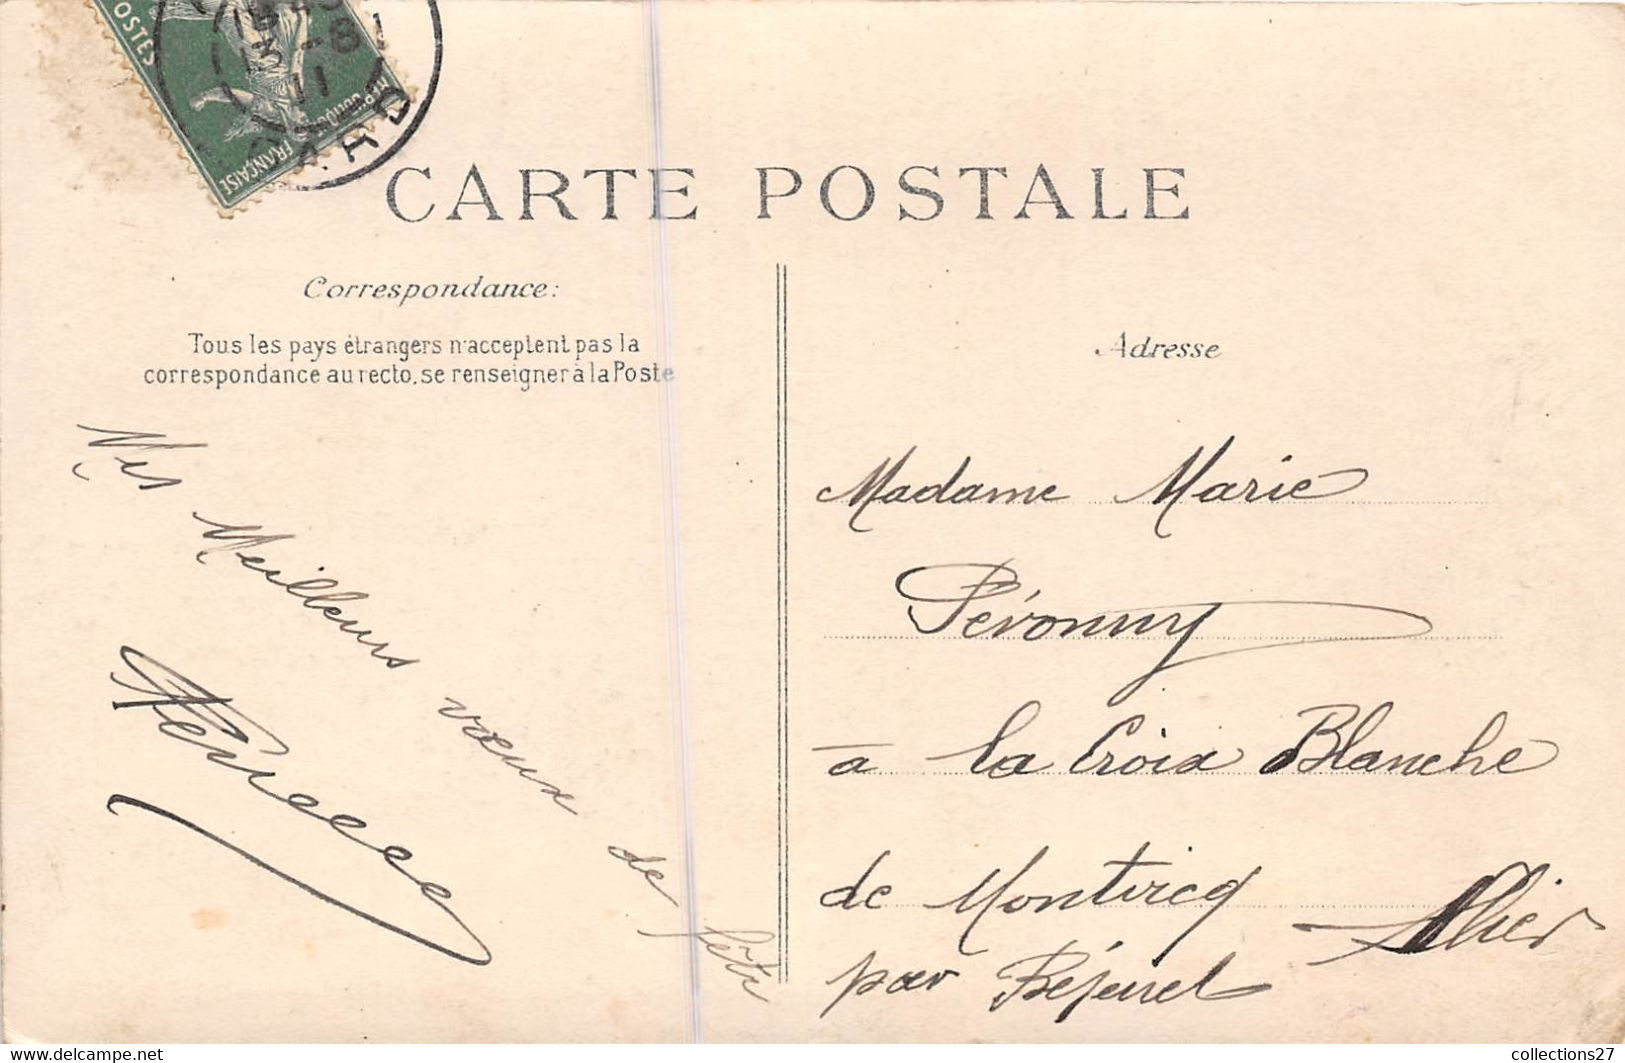 POSTES
RÉPUBLIQUE FRANÇAISE
13 -8
11
CARTE POSTALE
Correspondance:
Tous les pays étrangers n'acceptent pas la
correspondance au recto, se renseigner à la Poste
Adresse
Mes Meilleurs vœux de fête
Madame Marie
Pévonny
a la Croix Blanche
de Montvicq
par Bézenet Allier
collections27